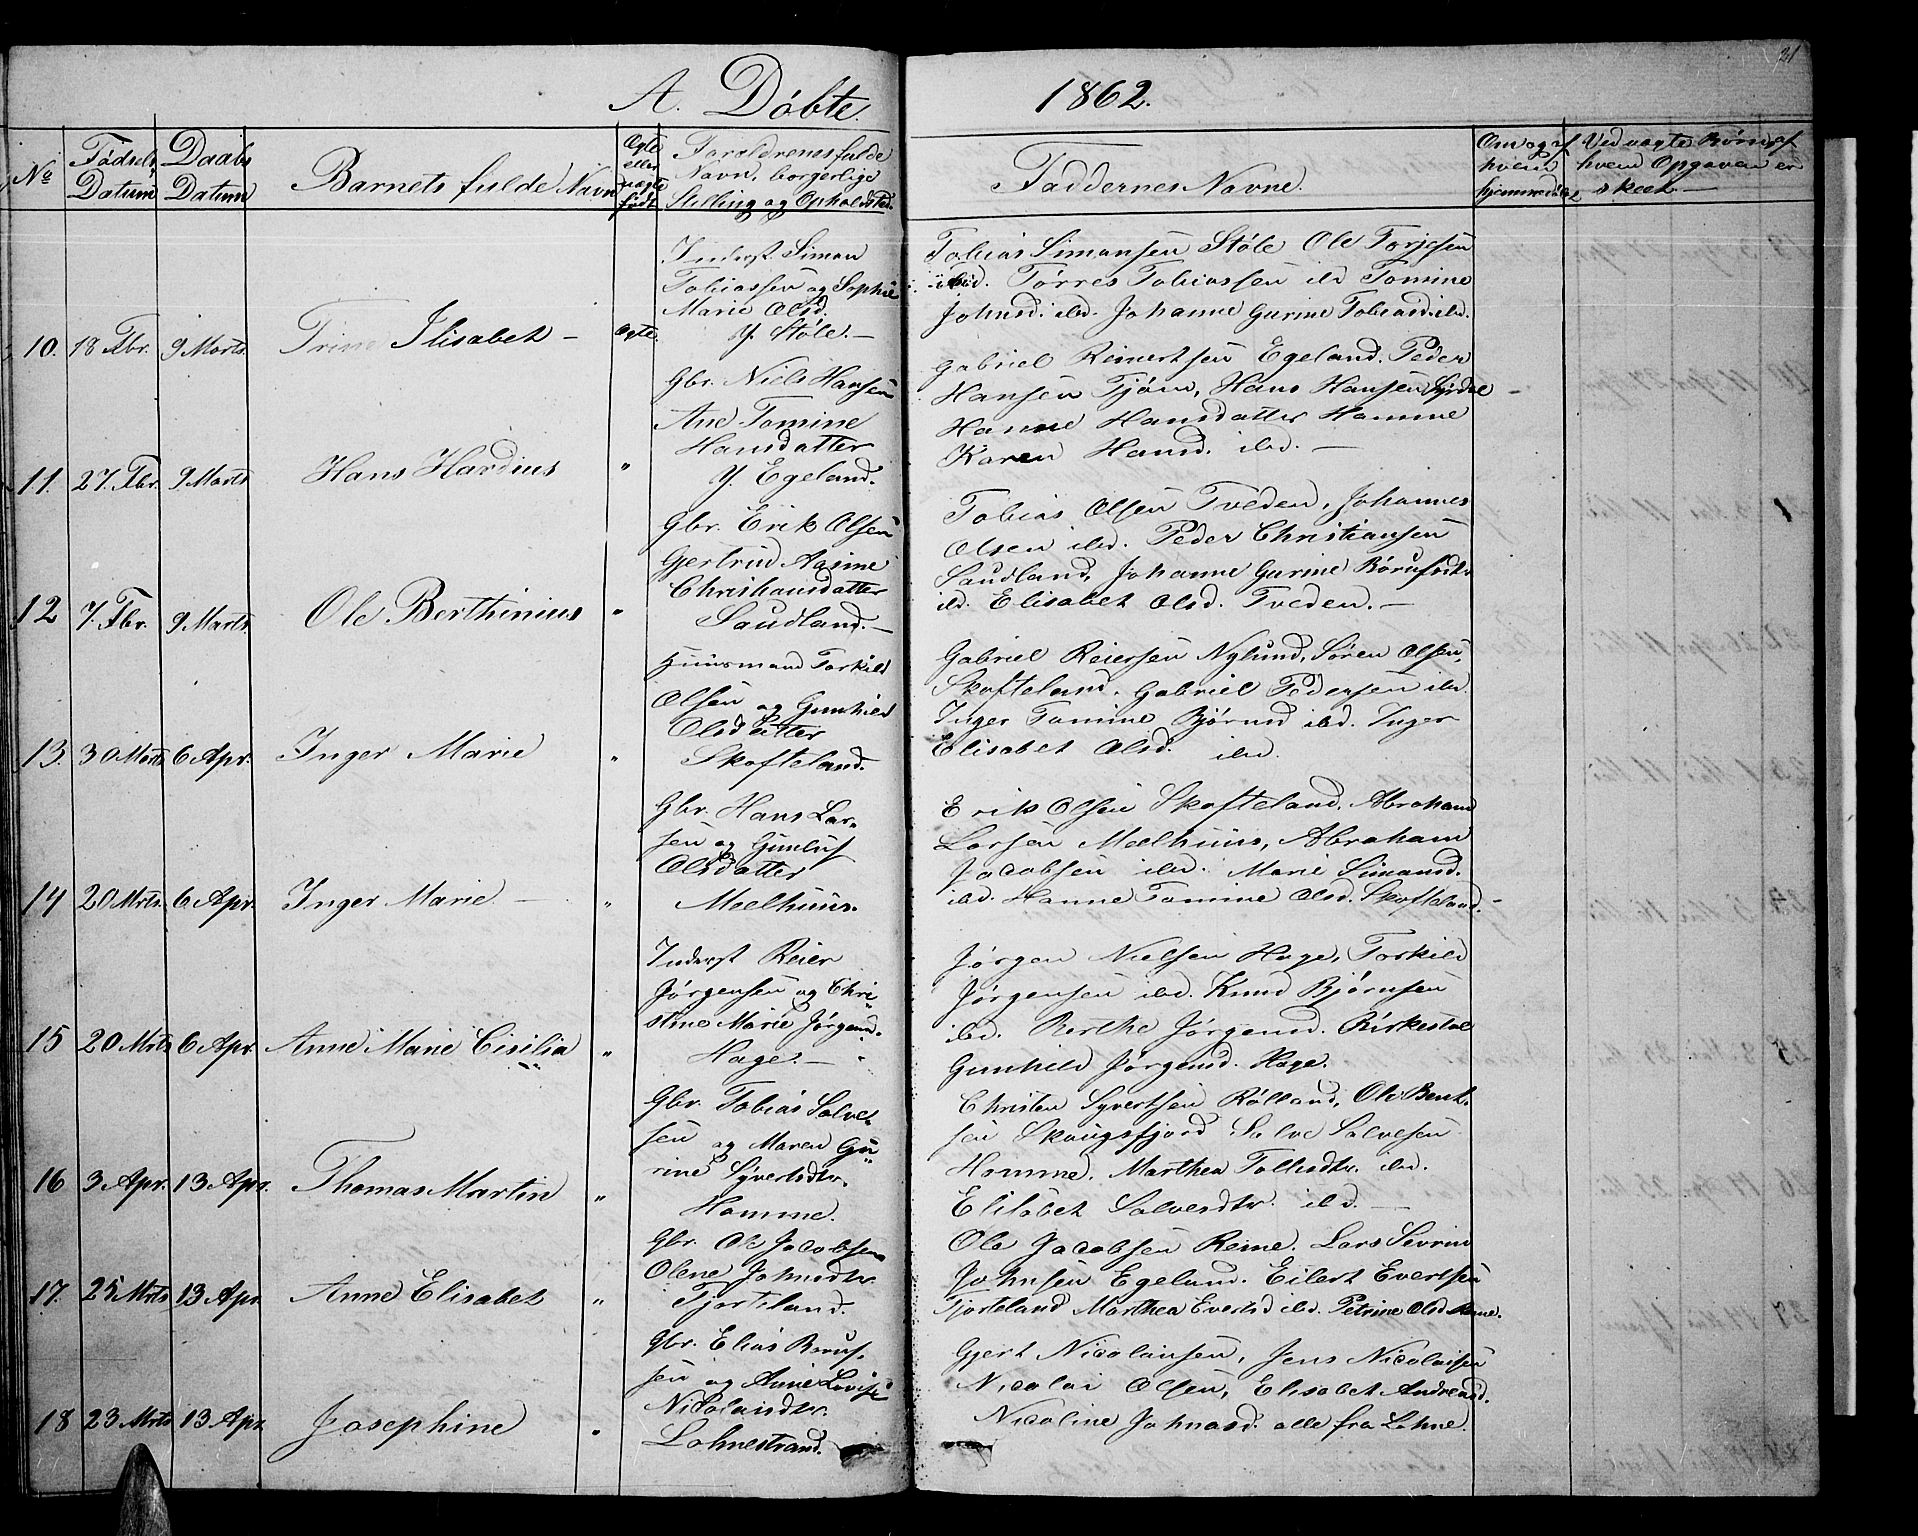 A. Döbte
1862.
21
No
Födsels Datum
Daabs Datum
Barnets fulde Navn
Ægte eller uægte födt
Foraldrenes fulde
Navn, borgerlige
Stilling og Opholdsted.
Faddernes Navne.
Om og af hvem hjemmedöbt
Ved uægte Börn af
hvem Opgaven er
skeet.—
10. 18 Fbr. 9 Marts. Trine Ilisabet — Ægte.
Inderst Simon
Tobiassen og Sophie
Marie Olsd.
Y. Støle.—
Tobias Simonsen Støle Ole Torjesen
ibid. Tørres Tobiassen ibd Tomine
Johnsd. ibd. Johanne Gurine Tobiasd. ibd.
11. 27. Fbr. 9 Marts Hans Hardius "
Gbr. Niels Hansen
Ane Tomine
Hansdatter
Y. Egeland.
Gabriel Reinertsen Egeland. Peder
Hansen Tjöm, Hans Hansen Syrdal —
Hanne Hansdatter Homme
Karen Hansd. ibd. —
12 7. Fbr. 9 Marts. Ole Berthinius "
Gbr. Erik Olsen
Gjertrud Aasine
Christiansdatter
Saudland.—
Tobias Olsen Tveden, Johannes
Olsen ibd. Peder Christiansen
Saudland, Johanne Gurine
ibd. Elisabet Olsd. Tveden. —
13. 30 Marts 6 Apr. Inger Marie "
Huusmand Torkild
Olsen og Gunhild
Olsdatter
Skofteland.
Gabriel Reiersen Nylund, Sören Olsen,
Skofteland. Gabriel Pedersen ibd.
Inger Tomine ibd. Inger
Elisabet Olsd. ibd.
14 20 Mrts. 6 Apr. Inger Marie — "
Gbr. Hans Lar-
sen og
Olsdatter
Mælhuus.
Erik Olsen Skofteland. Abraham
Larsen Mælhuus, Abraham
Jacobsen ibd. Marie Simonsd.
ibd. Hanne Tomine Olsd. Skofteland. —
15 20 Mrts 6 Apr. Anne Marie Cisilia "
Inderst Reier
Jörgensen og Chri-
stine Marie Jörgensd.
Hage. —
Jörgen Nielsen Hage, Torkild
Jörgensen ibd. Knud Björnsen
ibd. Berthe Jörgensd. Birkestöl
Gunhild Jörgensd. Hage.
16 3 Apr. 13 Apr. Thomas Martin "
Gbr. Tobias Salve-
sen og Maren Gu-
rine Syvertsdtr.
Homme.
Christen Syvertsen Rölland, Ole Bent-
sen Skougsfjord Salve Salvesen
Homme. Marthea ibd.
Elisabet Salvesdtr. ibd. —
17. 25 Mrts 13 Apr. Anne Elisabet "
Gbr. Ole Jacobsen
Olene Johnsdtr
Fjorteland.
Ole Jacobsen Reme. Lars Severin
Johnsen Egeland. Eilert Evertsen
Fjorteland Marthea Evertsd ibd. Petrine Olsd Reme.
18 23 Mrts 13 Apr. Josephine "
Gbr. Elias
sen og Anne Lovise
Nicolaisdtr.
Lohnestrand.
Gjert Nicolaisen, Jens Nicolaisen
Nicolai Olsen, Elisabet Andreasd.
Nicoline Johnasd. alle fra Lohne.